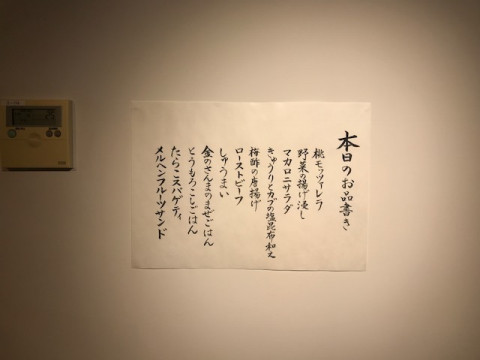 本日のお品書き
桃モッツァレラ
野菜の揚げ浸し
マカロニサラダ
きゅうりとカブの塩昆布和え
梅酢の唐揚げ
ローストビーフ
しゅうまい
金のさんまのまぜごはん
とうもろこしごはん
たらこスパゲティ
メルヘンフルーツサンド